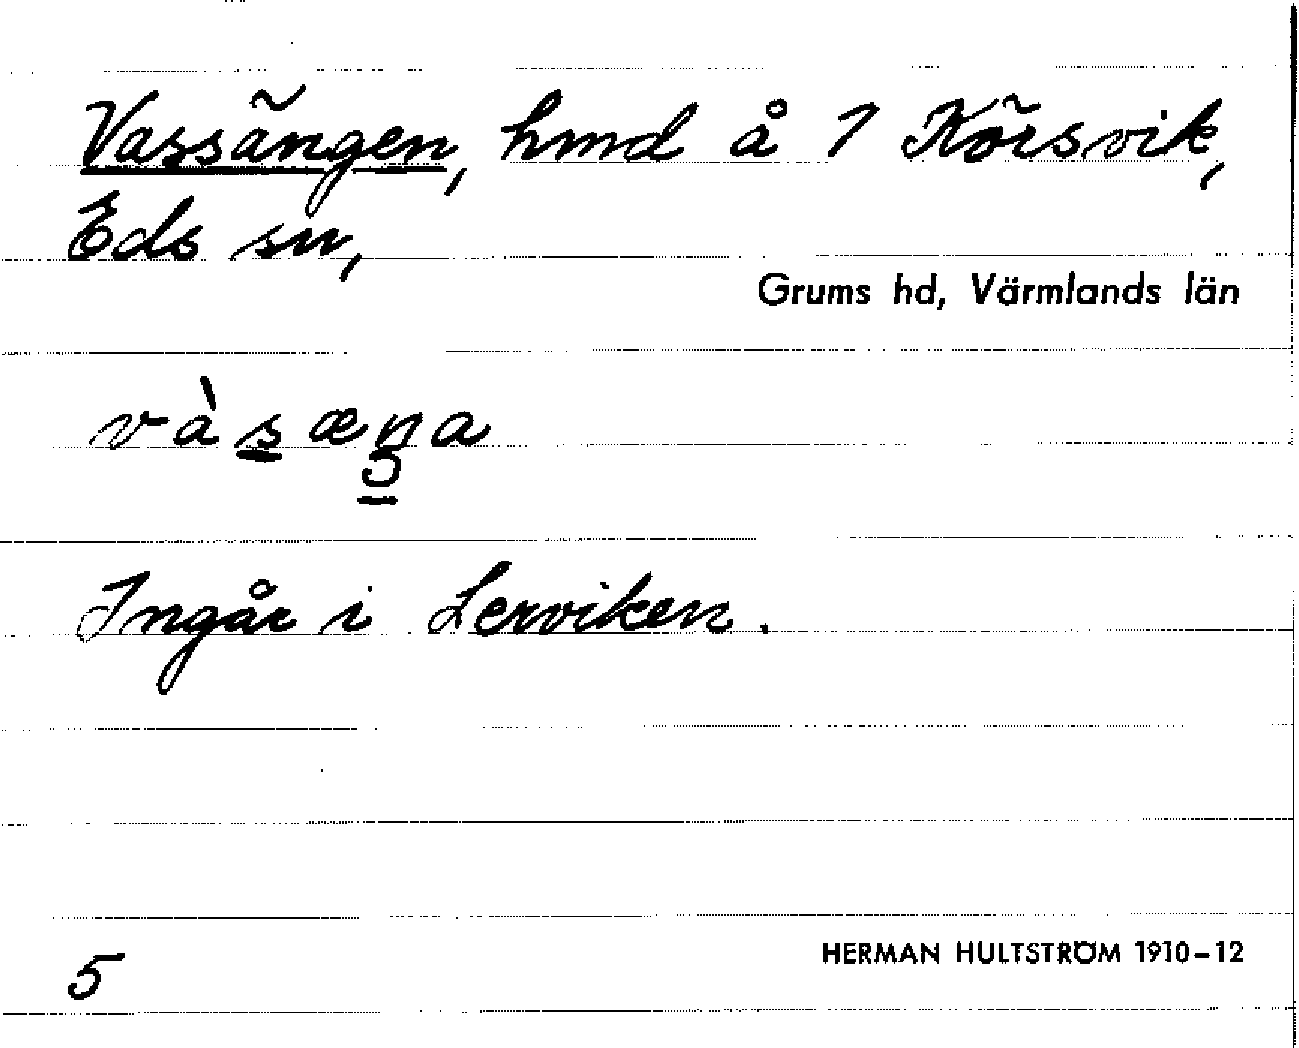 Vassängen, hmd å 1 Körsvik,
Eds sn,
Grums hd, Värmlands län
vàs̲æŋ̲a
Ingår i Lerviken.
HERMAN HULTSTRÖM 1910-12
5